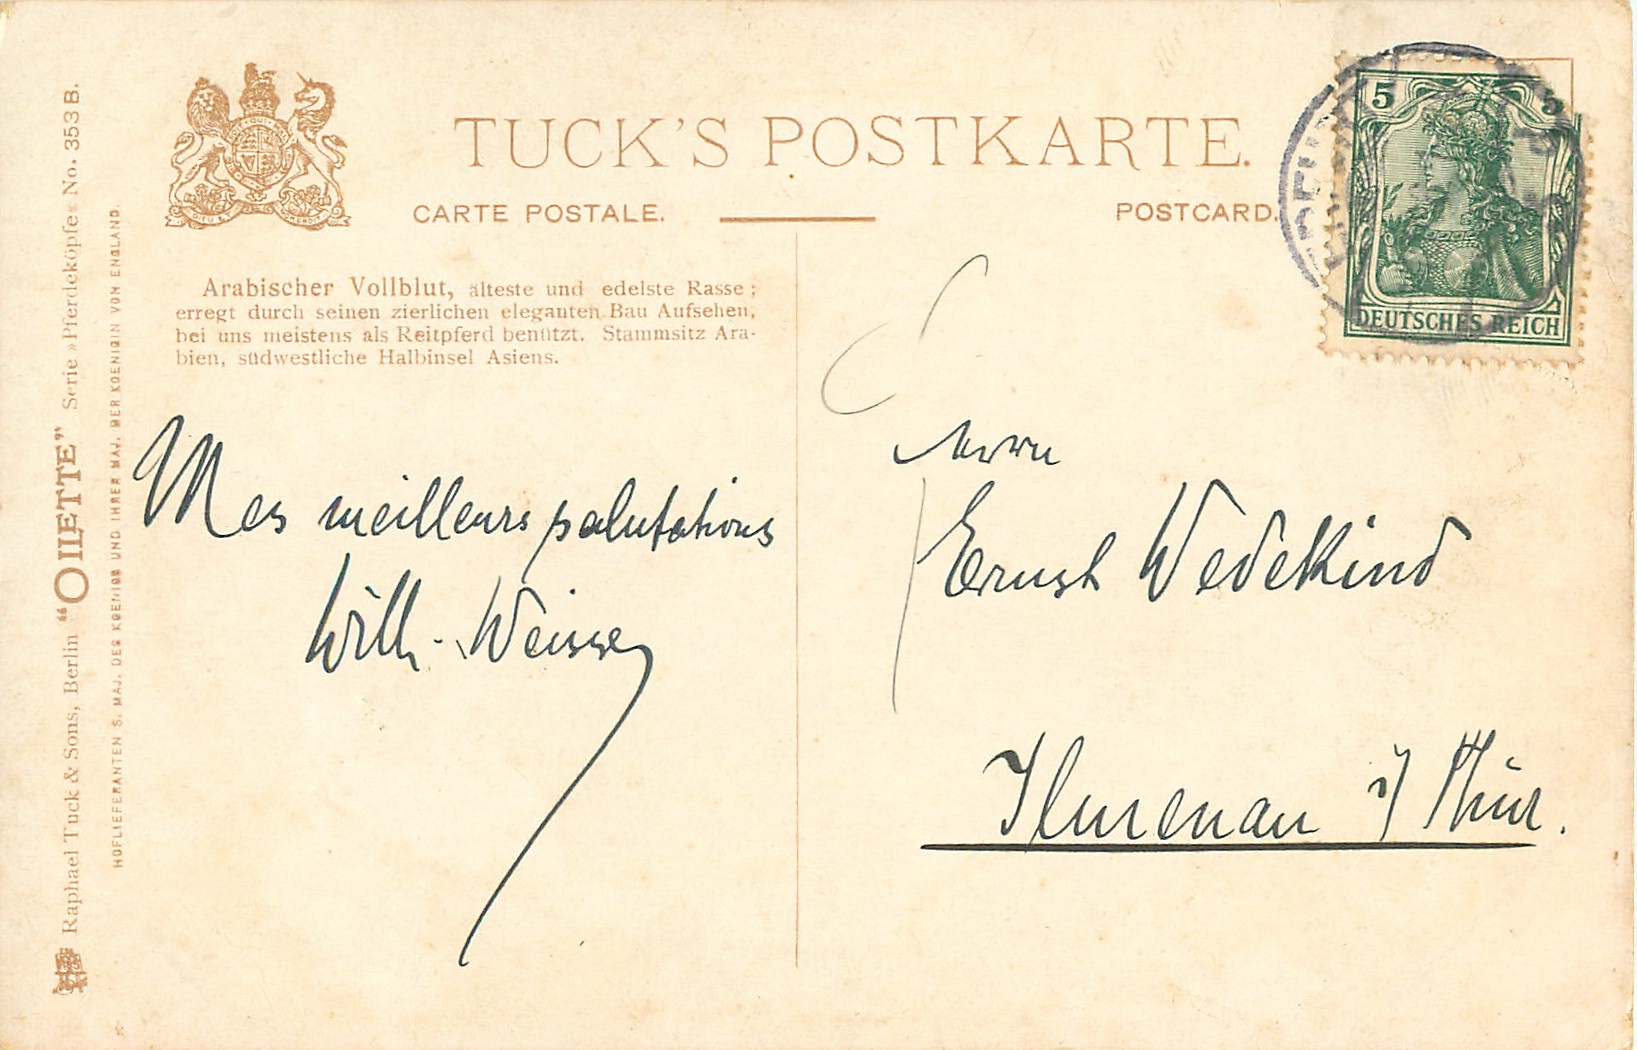 TUCK'S POSTKARTE.
CARTE POSTALE.
POSTCARD.
Arabischer Vollblut, älteste und edelste Rasse;
erregt durch seinen zierlichen eleganten Bau Aufsehen,
bei uns meistens als Reitpferd benützt. Stammsitz Ara-
bien, südwestliche Halbinsel Asiens.
Mes meilleurs salutations
Willi
Herrn
Ernst Wedekind
Ilmenau i/Thür.
5
5
DEUTSCHES REICH
Raphael Tuck & Sons, Berlin "OILETTE" Serie »Pferdeköpfe« No. 353 B.
HOFLIEFERANTEN S. MAJ. DES KOENIGS UND IHRER MAJ. DER KOENIGIN VON ENGLAND.